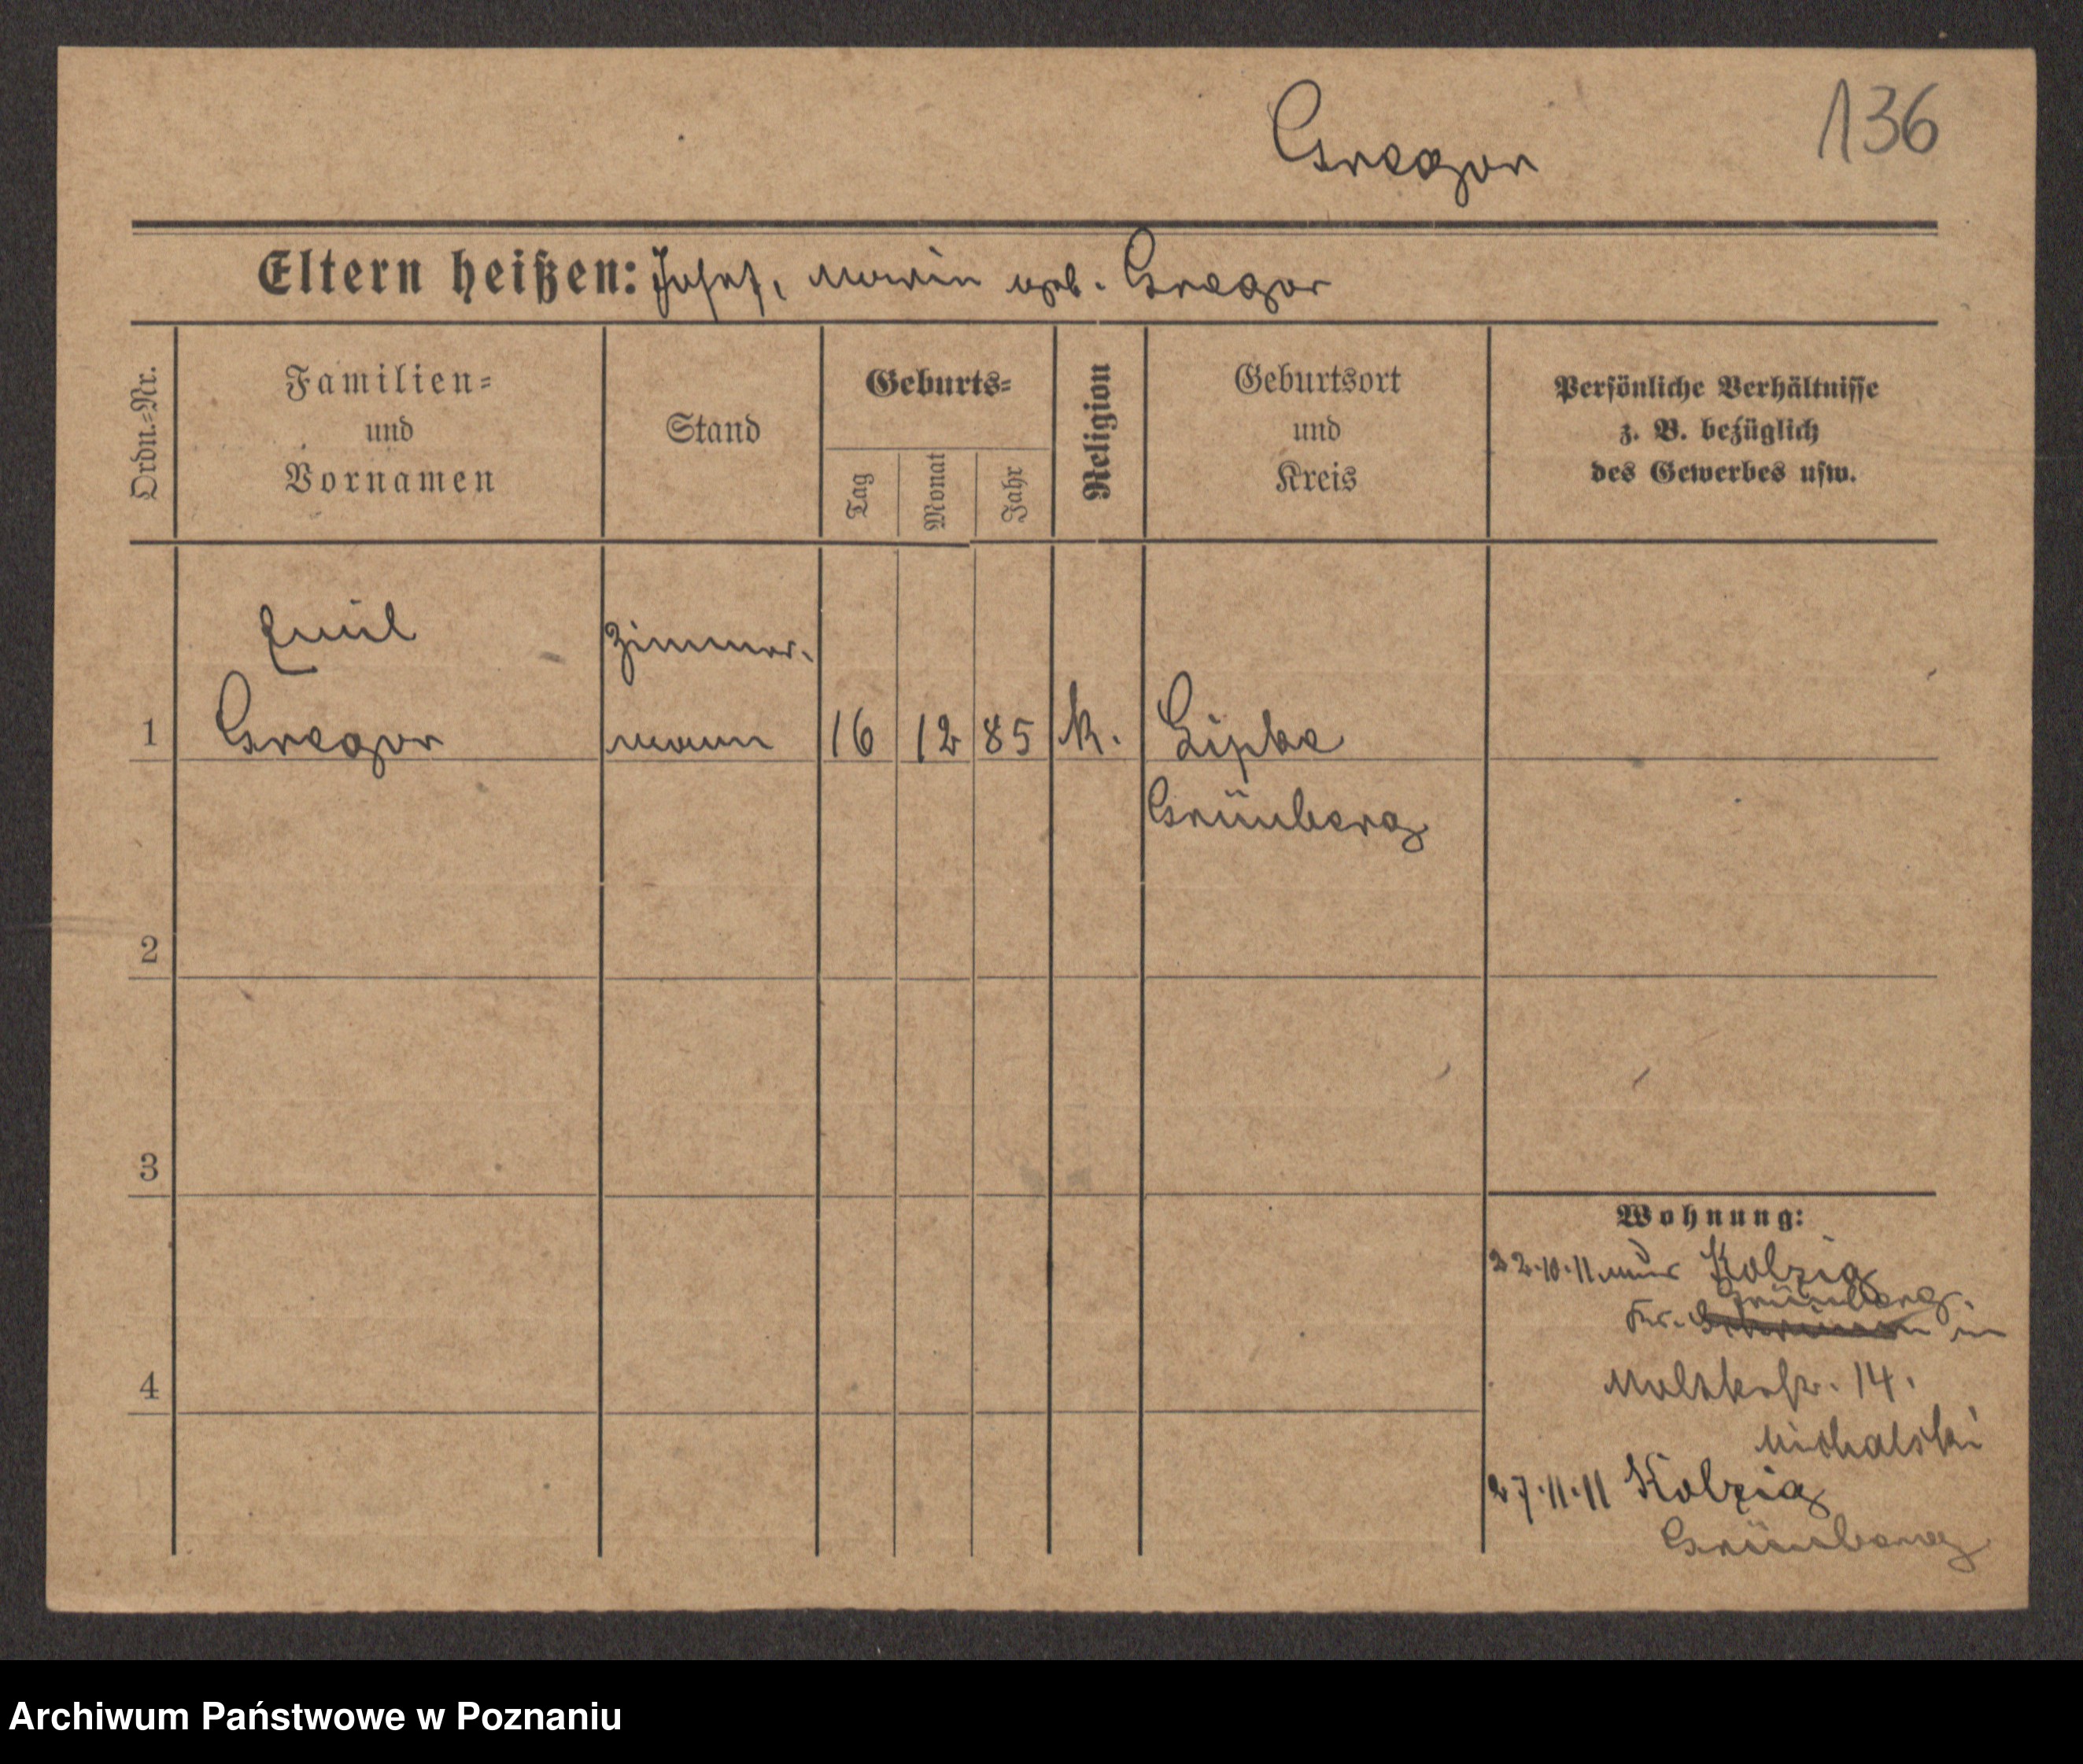 Gregor
136
Eltern heißen: Josef, Marie geb. Gregor
Ordn.=Nr.
Familien=
und
Vornamen
Stand
Geburts=
Tag
Monat
Jahr
Religion
Geburtsort
und
Kreis
Persönliche Verhältnisse
z. B. bezüglich
des Gewerbes usw.
Emil
Zimmer-
1 Gregor mann 16 12 85 k. Lipke
Grünberg
2
3
4
Wohnung:
22.10.11. aus Kolzig
Grünberg.
Kr. in
Moltkestr. 14.
Michalski
27.11.11 Kolzig
Grünberg
Archiwum Państwowe w Poznaniu